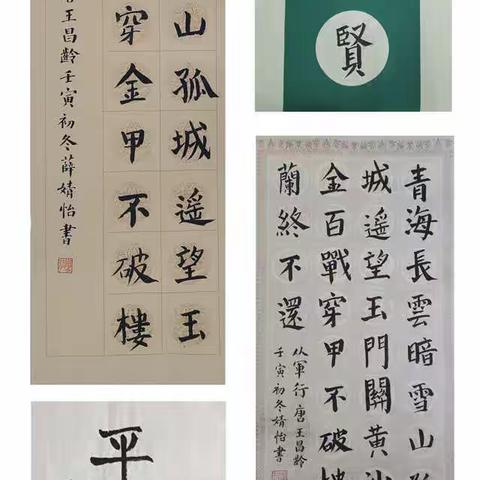 山孤城遙望玉
穿金甲不破樓
王昌齡壬寅初冬薛婧怡書
賢
青海長雲暗雪山孤
城遙望玉門關黃沙
金百戰穿甲不破樓
蘭終不還
从軍行 唐 王昌齡
壬寅初冬婧怡書
平